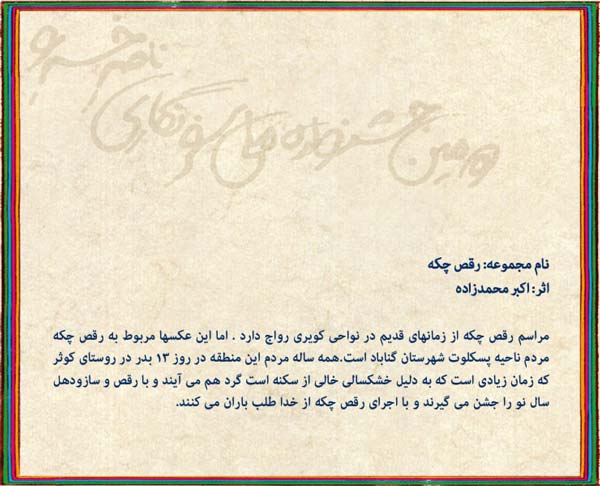 دومین جشنواره ملی سفرنگاری
ناصر خسرو
نام مجموعه: رقص چکه
اثر: اکبر محمدزاده
مراسم رقص چکه از زمانهای قدیم در نواحی کویری رواج دارد . اما این عکسها مربوط به رقص چکه
مردم ناحیه پسکلوت شهرستان گناباد است.همه ساله مردم این منطقه در روز ۱۳ بدر در روستای کوثر
که زمان زیادی است که به دلیل خشکسالی خالی از سکنه است گرد هم می آیند و با رقص و سازودهل
سال نو را جشن می گیرند و با اجرای رقص چکه از خدا طلب باران می کنند.